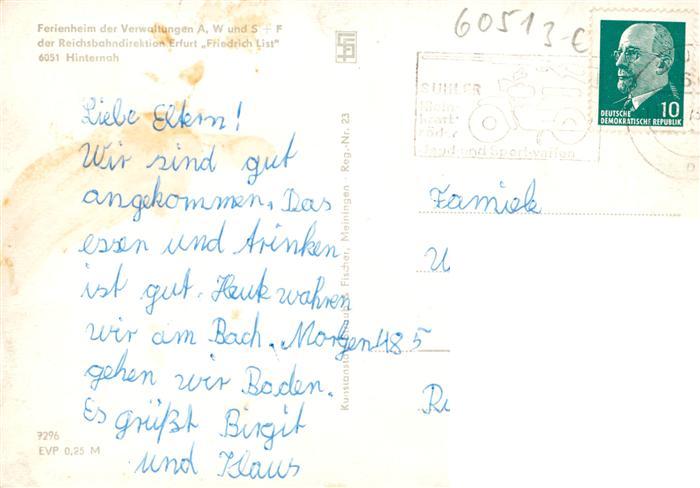 Ferienheim der Verwaltungen A, W und S + F
der Reichsbahndirektion Erfurt „Friedrich List"
6051 Hinternah
60513-C
SUHLER
Klein-
kraft-
räder
Jagd-und Sportwaffen
10
DEUTSCHE
DEMOKRATISCHE REPUBLIK
Liebe Eltern!
Wir sind gut
angekommen. Das
essen und trinken
ist gut. Heute wahren
wir am Bach. Morgen
gehen wir Baden.
Es grüßt Birgit
und Klaus
Familie
U
485
R
Fischer, Meiningen · Reg.-Nr. 23
7296
EVP 0,25 M